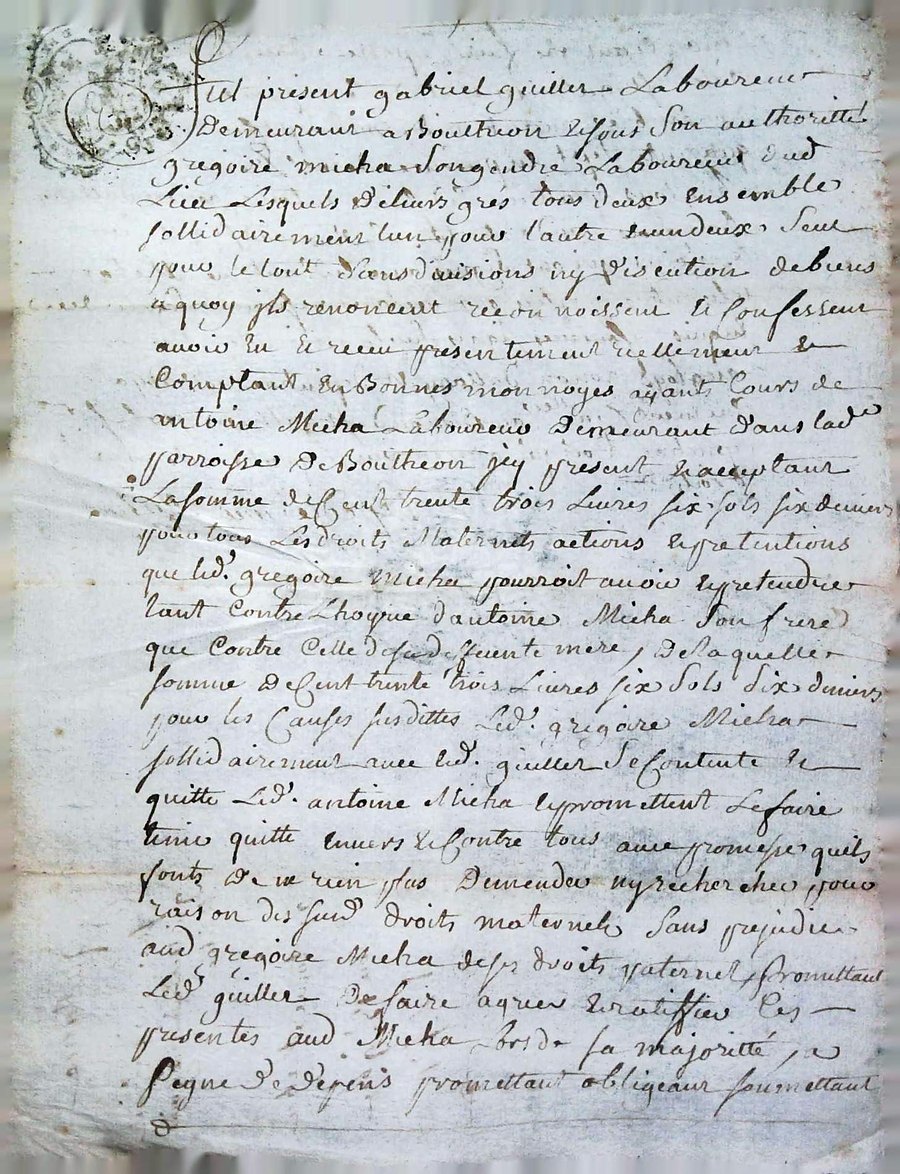 Fut présent gabriel guiller Laboureur
Demeurant a Boutheon & sous Son authoritté
grégoire micha Son gendre Laboureur dud
Lieu Lesquels de leurs grés tous deux Ensemble
sollidairement lun pour l'autre & un deux Seul
pour le tout Sans divisions ny discution de biens
a quoy jls renoncent reconnoissent & Confessent
avoir Eu & receu présentement réellement &
Comptant En Bonnes monnoyes ayants Cours de
antoine Micha Laboureur Demeurant dans lad^e
parroisse De Boutheon jcy présent & acceptant
La somme de Cent trente trois Livres six sols six deniers
pour tous Les droits Maternels actions & prétentions
que led^t. grégoire micha pourroit avoir & prétendre
tant Contre L'hoyrie d'antoine Micha Son frere
que Contre Celle de sa deffuente mere, De laquelle
somme De Cent trente trois Livres six Sols Six deniers
pour les Causes susdittes Led^t. grégoire Micha
sollidairement avec led^t. guiller Se Contente &
quitte Led^t. antoine Micha & promettent Le faire
tenir quitte Envers & Contre tous avec promesse quils
fonts De ne rien plus Demender ny rechercher pour
raison des susd^t droits maternels Sans préjudice
aud grégoire Micha de ses droits paternels, promettant
Led^t guiller De faire agreer & ratiffier Ces
présentes aud Micha Lors de sa majoritté, a
Peyne De Depens promettant obligeant soumettant
&